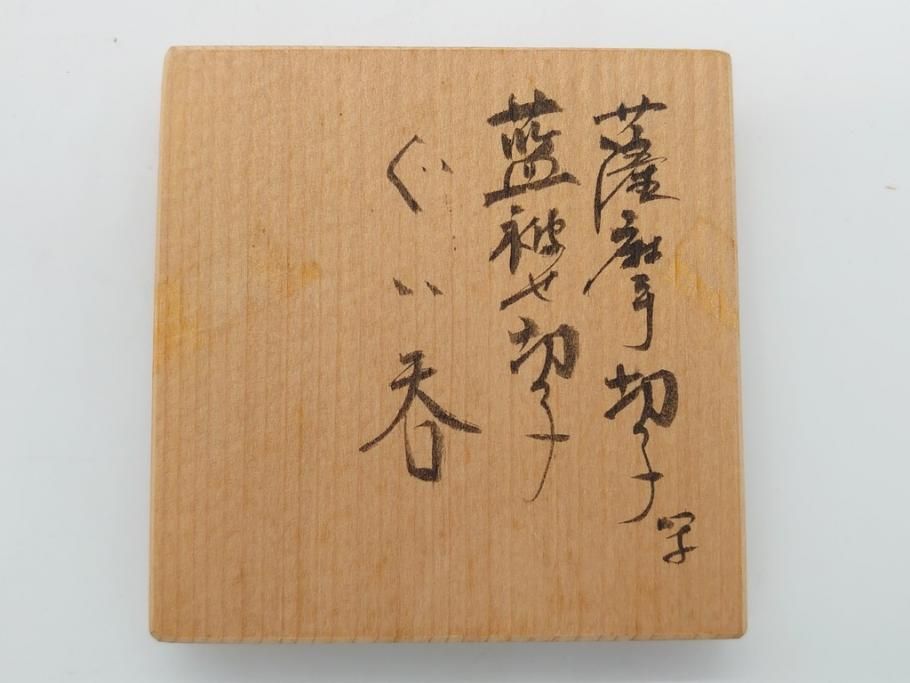 薩摩切子写
藍被せ切子
ぐい呑